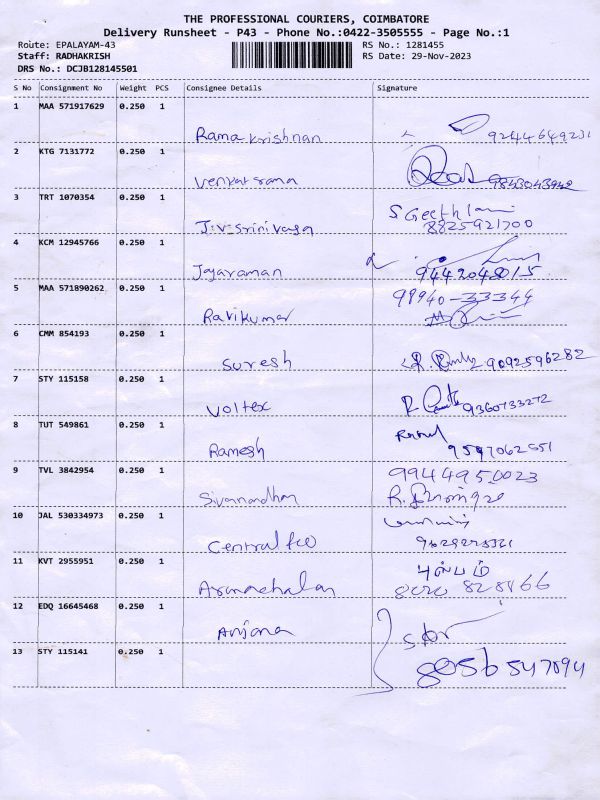 THE PROFESSIONAL COURIERS, COIMBATORE
Delivery Runsheet - P43 - Phone No.:0422-3505555 - Page No.:1
Route: EPALAYAM-43 RS No.: 1281455
Staff: RADHAKRISH RS Date: 29-Nov-2023
DRS No.: DCJB128145501
S No Consignment No Weight PCS Consignee Details Signature
1 MAA 571917629 0.250 1
Rama krishnan 9244649231
2 KTG 7131772 0.250 1
Venkatrama 9843043942
3 TRT 1070354 0.250 1
S Geethlami
J.V-Srinivasa 8825921700
4 KCM 12945766 0.250 1
Jayaraman 9442048015
5 MAA 571890262 0.250 1
99940-33344
Ravikumar
6 CMM 854193 0.250 1
Suresh 9092596282
7 STY 115158 0.250 1
Voltex 9360733272
8 TUT 549861 0.250 1
Ramesh 9597062551
9 TVL 3842954 0.250 1
9944950023
Sivanandhan
10 JAL 530334973 0.250 1
Central
11 KVT 2955951 0.250 1
Arunachalan
12 EDQ 16645468 0.250 1
Anjana
13 STY 115141 0.250 1
8056547094